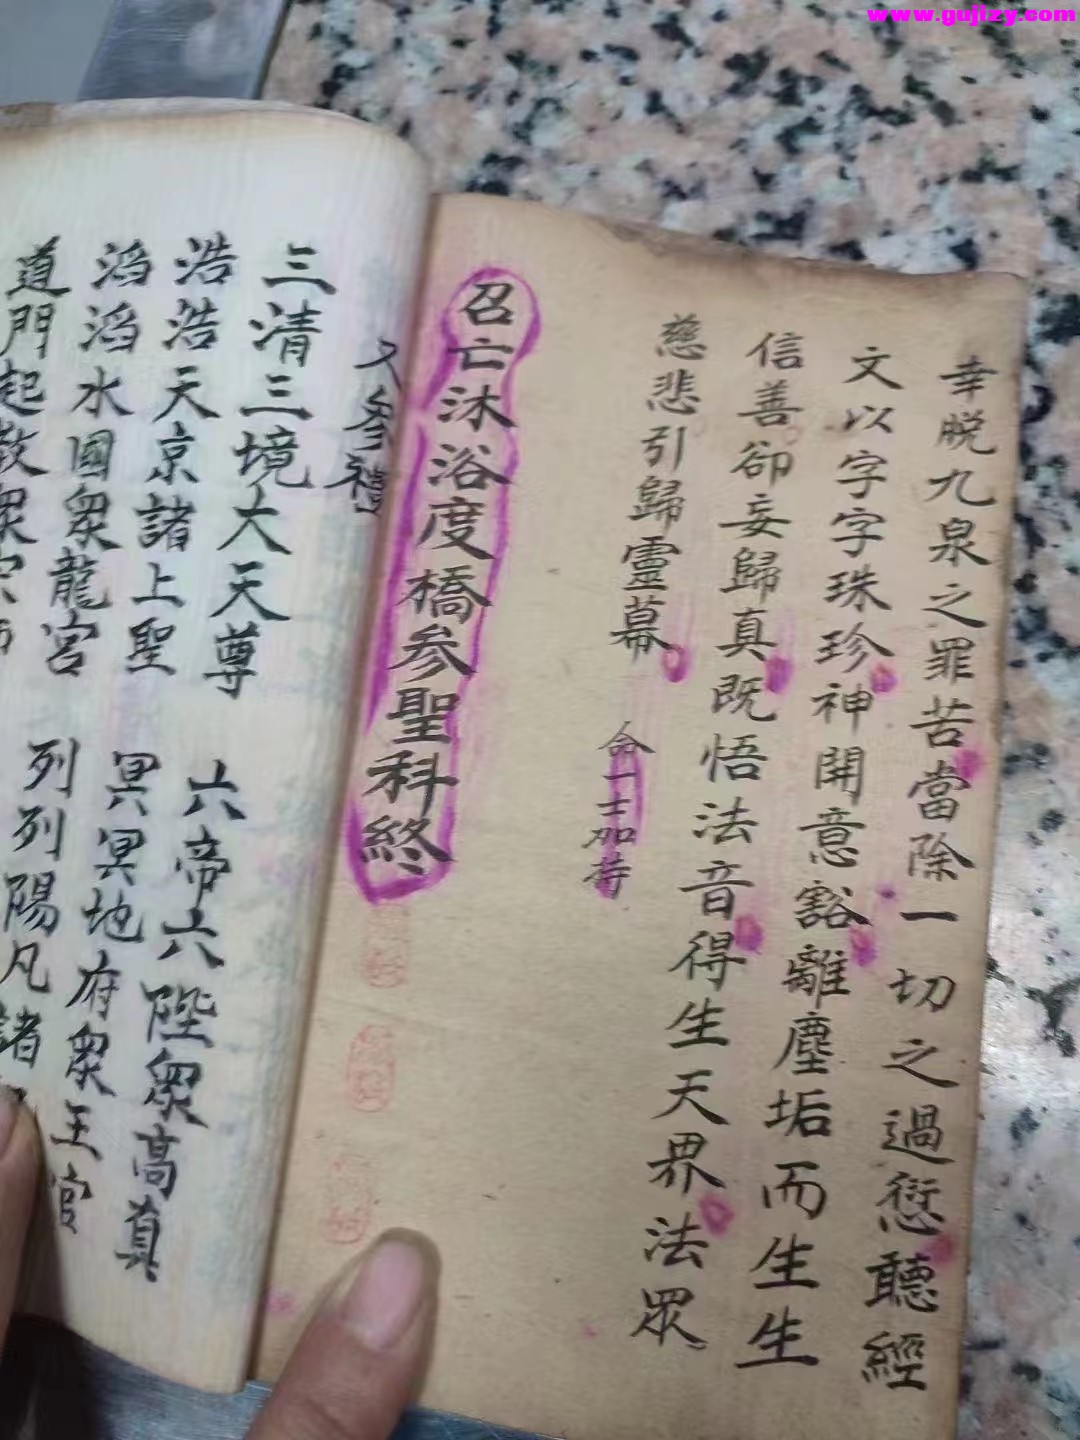 www.gujizy.com
幸脱九泉之罪苦當除一切之過愆聽經
文以字字珠珍神開意豁離塵垢而生生
信善卻妄歸真既悟法音得生天界法眾
慈悲引歸靈幕 命一士加持
召亡沐浴度橋参聖科終
又参禮
三清三境大天尊 六帝六陛眾高真
浩浩天京諸上聖 冥冥地府眾王官
滔滔水國眾龍宮 列列陽凡諸
道門起教眾宗師